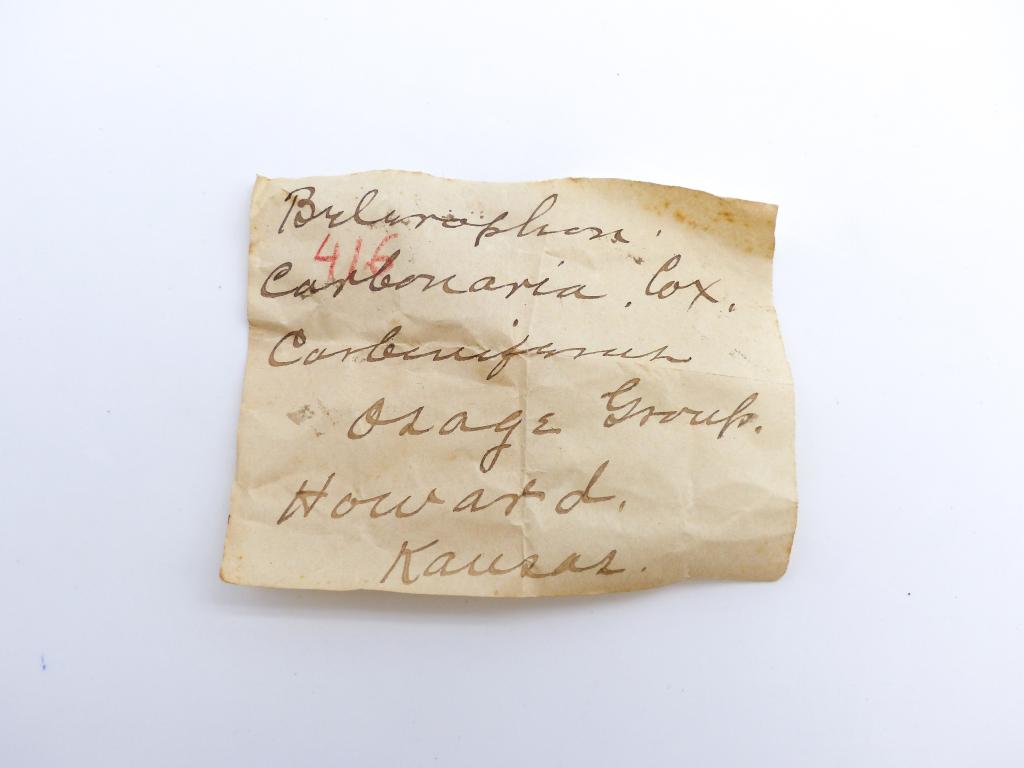 Belerophon.
416
Carbonaria. Cox.
Carboniferous
Osage Group.
Howard.
Kansas.